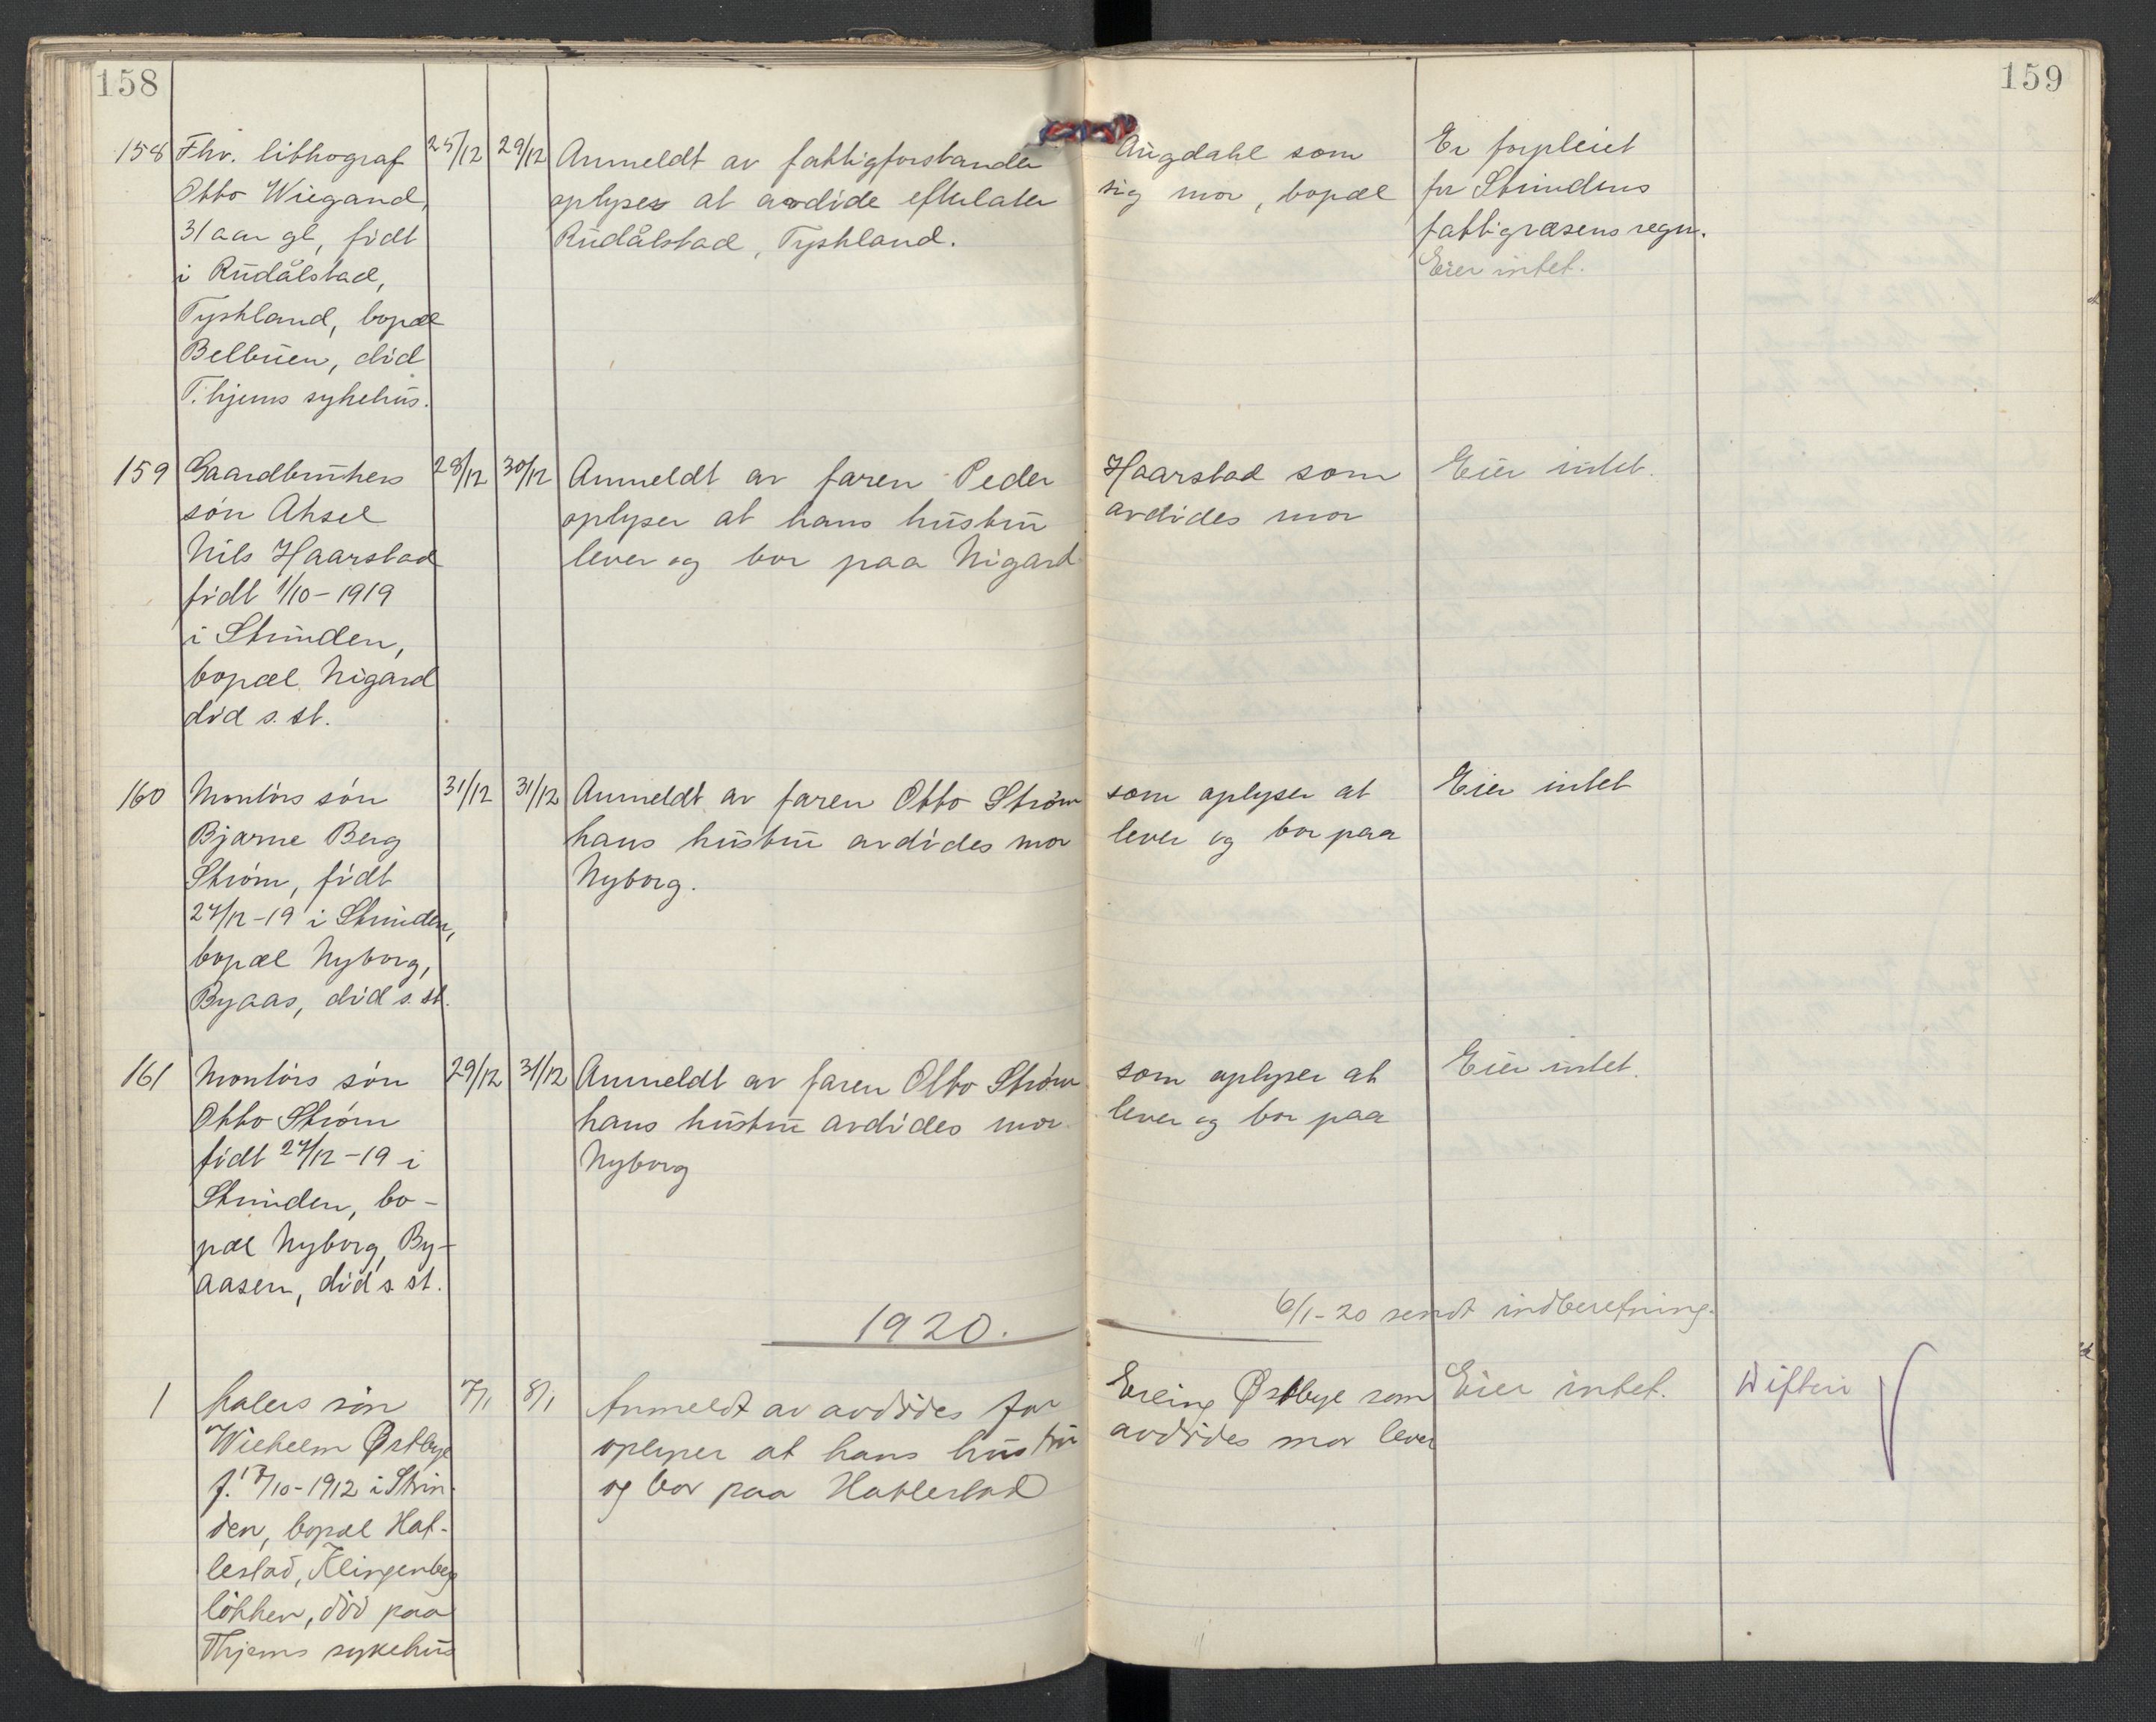 158
159
158 Fhv. lithograf 25/12 29/12 Anmeldt av fattigforstander Augdahl som Er forpleiet
Otto Wiegand, oplyses at avdøde efterlater sig mor, bopæl for Strindens
31 aar gl, født Rudålstad, Tyskland. fattigvæsens regn.
i Rudålstad, Eier intet.
Tyskland, bopæl
Belbuen, død
T.hjems sykehus.
159 Gaardbrukers 28/12 30/12 Anmeldt av faren Peder Haarstad som Eier intet.
søn Aksel oplyser at hans hustru avdødes mor
Nils Haarstad lever og bor paa Nigard
født 1/10-1919
i Strinden,
bopæl Nigard
død s. st.
160 Montørs søn 31/12 31/12 Anmeldt av faren Otto Strøm som oplyser at Eier intet
Bjarne Berg hans hustru avdødes mor lever og bor paa
Strøm, født Nyborg.
27/12-19 i Strinden,
bopæl Nyborg,
Byaas, død s. st.
161 Montørs søn 29/12 31/12 Anmeldt av faren Otto Strøm som oplyser at Eier intet.
Otto Strøm hans hustru avdødes mor lever og bor paa
født 27/12-19 i Nyborg
Strinden, bo-
pæl Nyborg, By-
aasen, død s. st.
6/1-20 sendt indberetning.
1920.
1 Malers søn 7/1 8/1 Anmeldt av avdødes far Erling Østbye som Eier intet.
Wilhelm Østbye oplyser at hans hustru avdødes mor lever
f. 17/10-1912 i Strin- og bor paa Hatlestad
den, bopæl Hat-
lestad, Klingenberg
løkken, død paa
Thjems sykehus